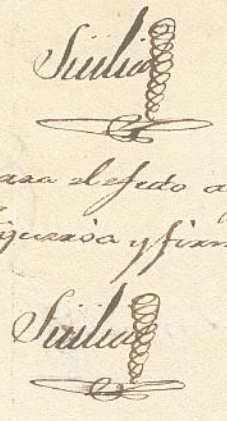 Sicilia
para el efecto a
y firm
Sicilia